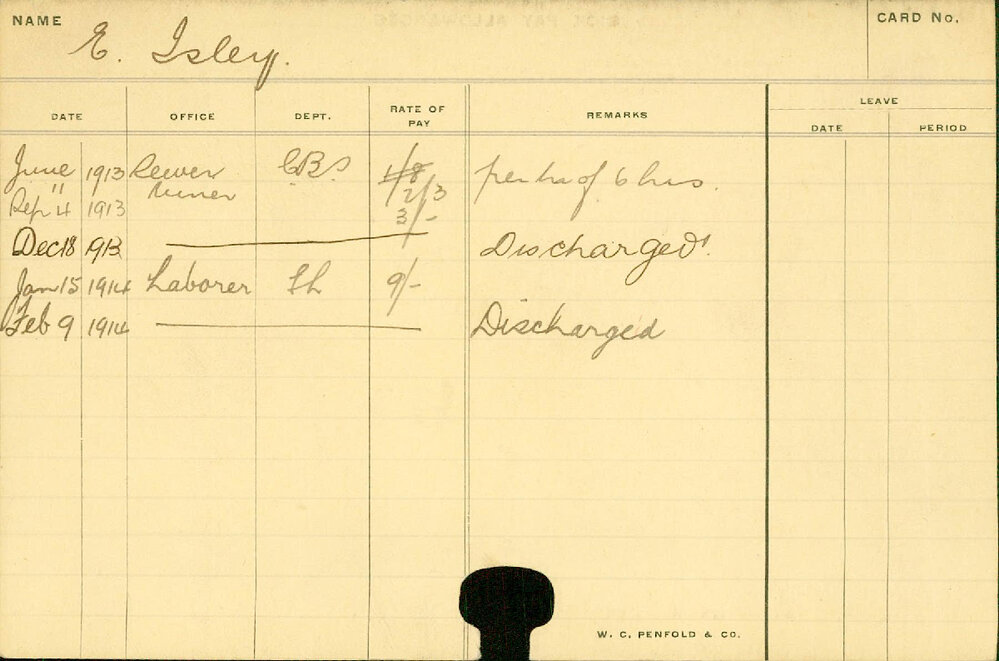 NAME E. Isley. CARD No.
DATE OFFICE DEPT. RATE OF PAY REMARKS LEAVE
DATE PERIOD
June 1913 Sewer C.B.S 1/8 per hr of 6 hrs.
" Miner 2/3
Sep 4 1913 3/-
Dec 18 1913 Discharged.
Jan 15 1914 Laborer 9/-
Feb 9 1914 Discharged
W. C. PENFOLD & CO.